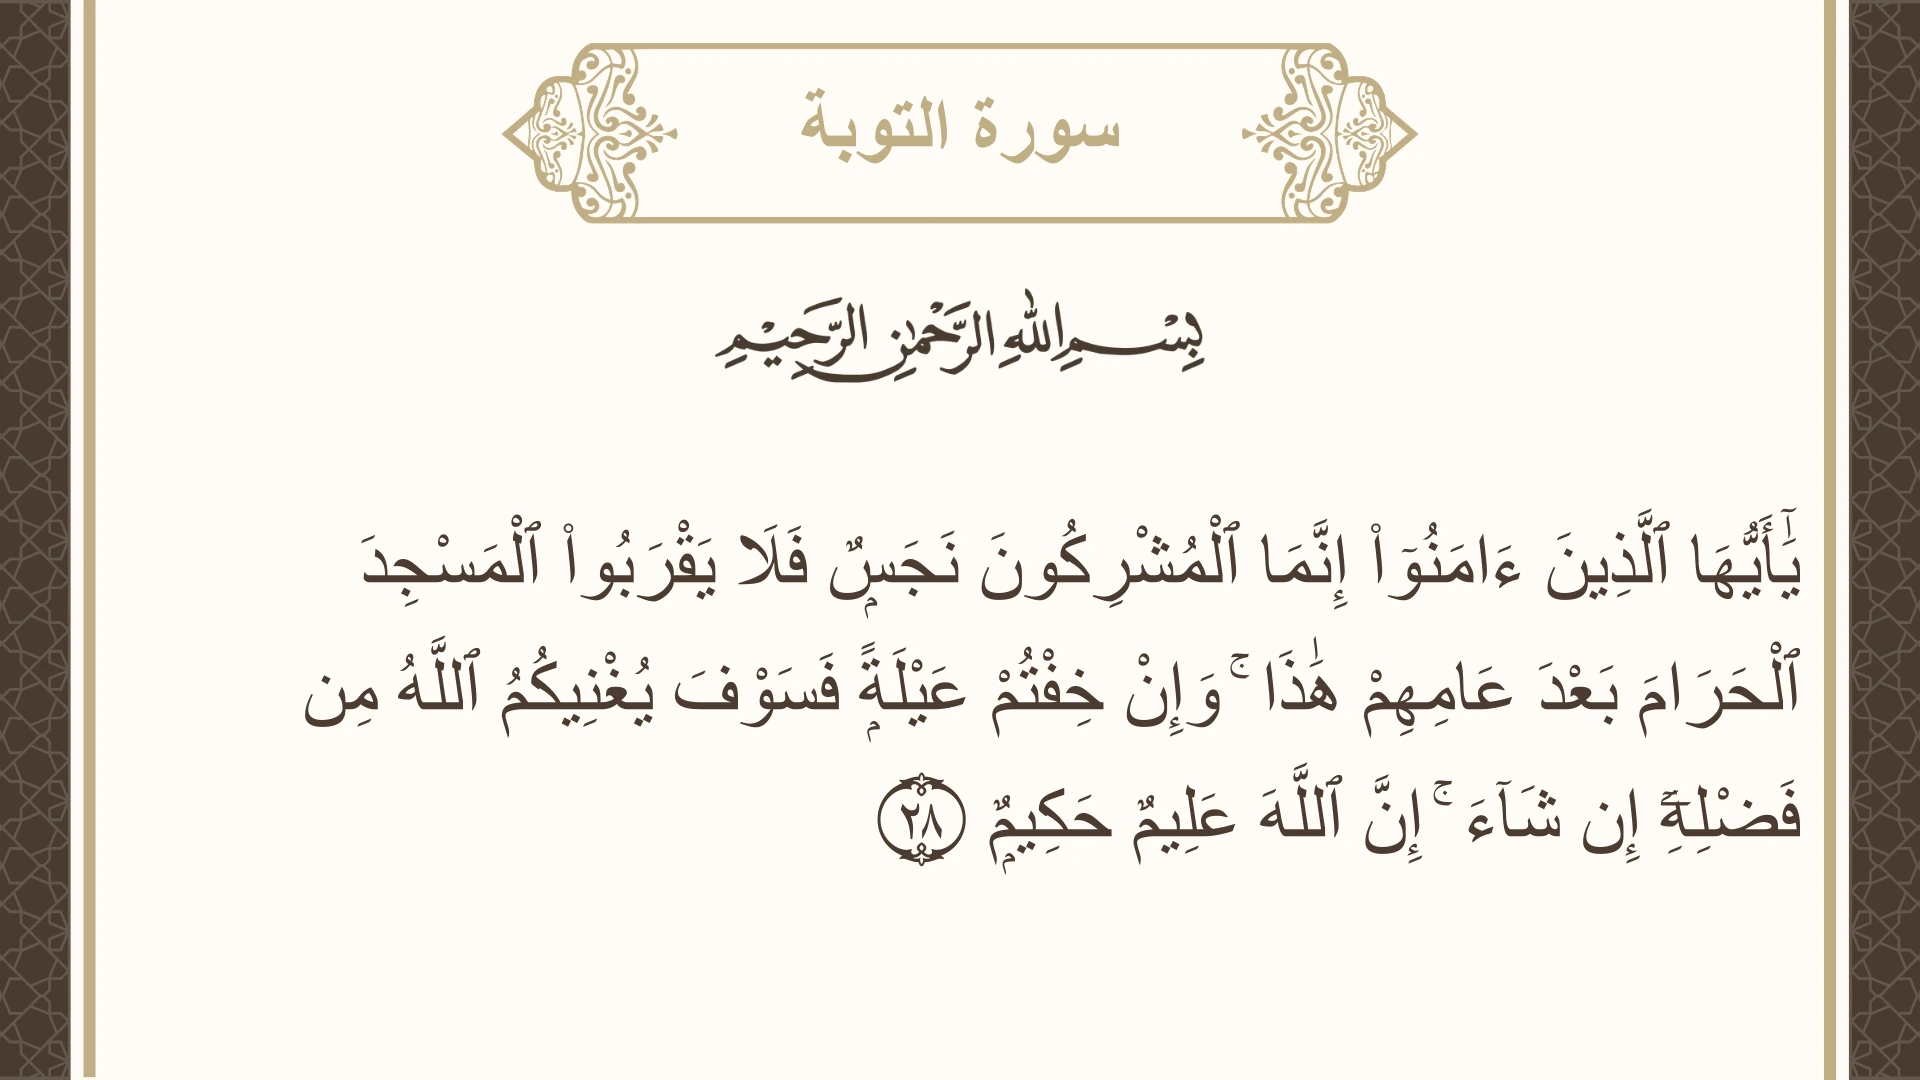 سورة التوبة
بِسْمِ اللهِ الرَّحْمٰنِ الرَّحِيْمِ
يَٰٓأَيُّهَا ٱلَّذِينَ ءَامَنُوٓا۟ إِنَّمَا ٱلْمُشْرِكُونَ نَجَسٌۭ فَلَا يَقْرَبُوا۟ ٱلْمَسْجِدَ
ٱلْحَرَامَ بَعْدَ عَامِهِمْ هَٰذَا ۚ وَإِنْ خِفْتُمْ عَيْلَةًۭ فَسَوْفَ يُغْنِيكُمُ ٱللَّهُ مِن
فَضْلِهِۦٓ إِن شَآءَ ۚ إِنَّ ٱللَّهَ عَلِيمٌ حَكِيمٌۭ ٢٨